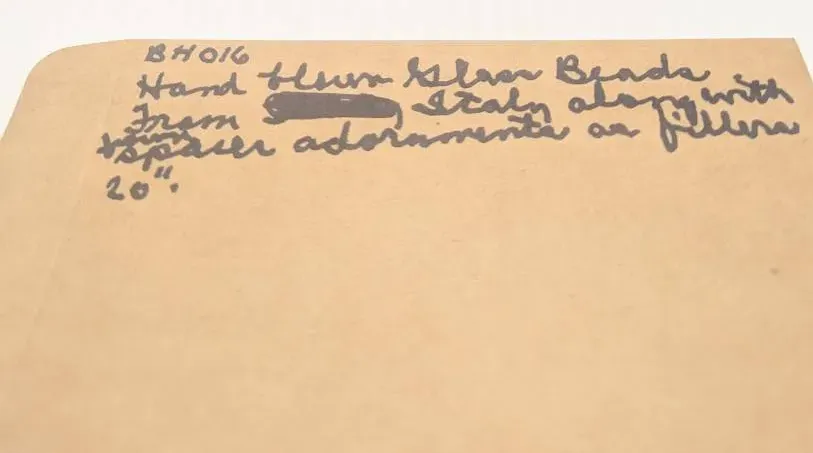 BH016
Hand blown Glass Beads
From , Italy along with
spacer adornments as fillers
20".